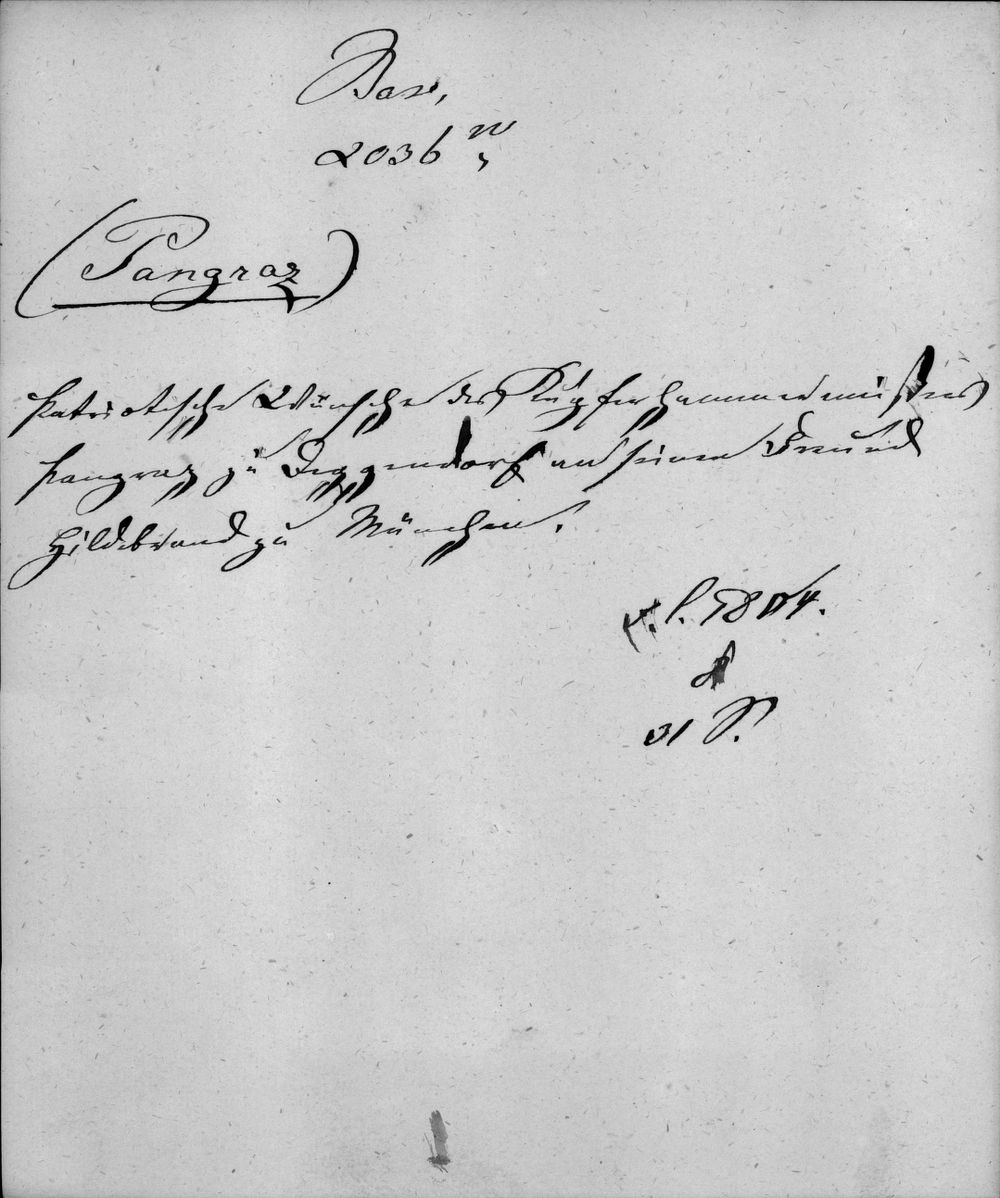 Bav.
2036 m,
(Pangraz)
Patriotische Wünsche des Kupferhammermeisters
Pangraz zu Deggendorf an seinen Freund
Hildebrand zu München.
s. l. 1804.
8
31 S.